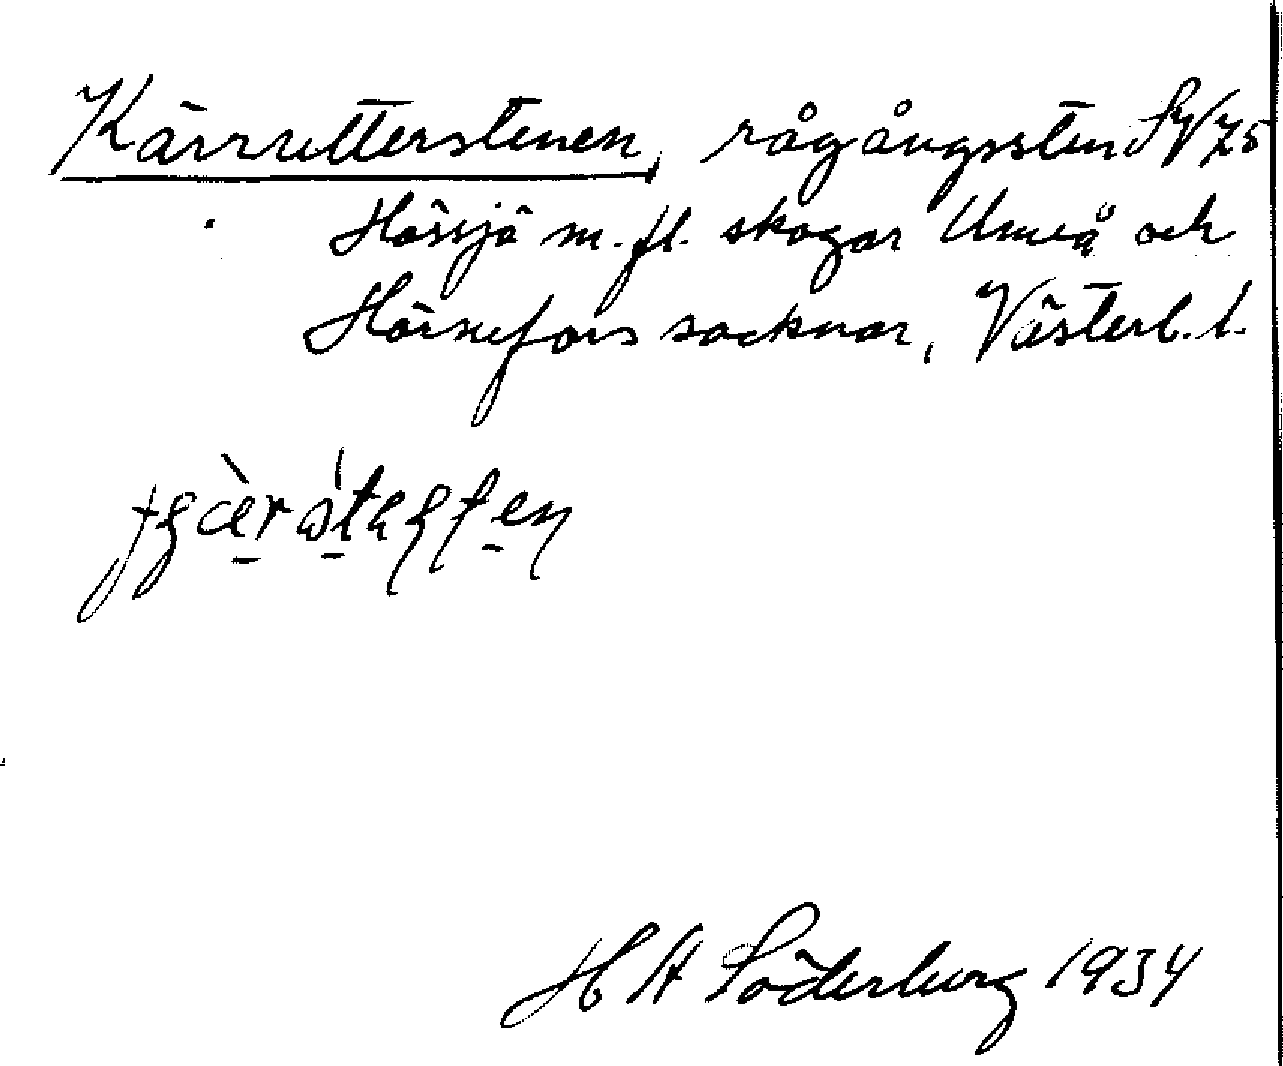 Kärrutterstenen, rågångssten SV Z5
Hössjö m. fl. skogar Umeå och
Hörnefors socknar, Västerb. l.
H A Söderberg 1934